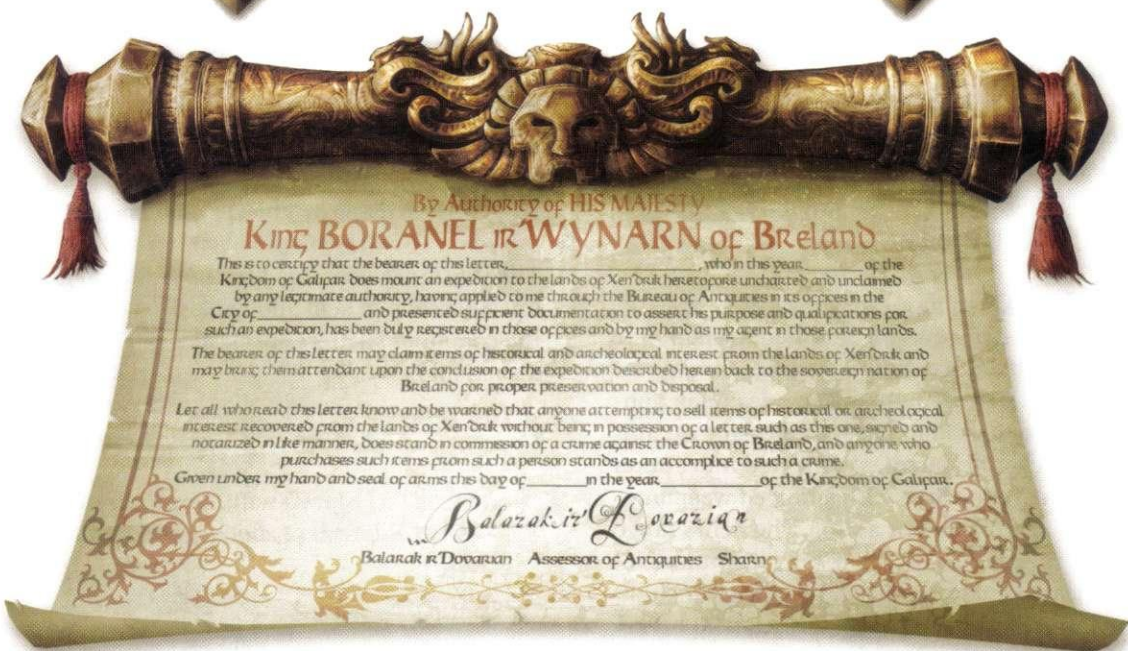 By Authority of HIS MAJESTY
King BORANEL ir'WYNARN of Breland
This is to certify that the bearer of this letter,____________________, who in this year________of the
Kingdom of Galifar does mount an expedition to the lands of Xen'drik heretofore uncharted and unclaimed
by any legitimate authority, having applied to me through the Bureau of Antiquities in its offices in the
City of______________and presented sufficient documentation to assert his purpose and qualifications for
such an expedition, has been duly registered in those offices and by my hand as my agent in those foreign lands.
The bearer of this letter may claim items of historical and archeological interest from the lands of Xen'drik and
may bring them attendant upon the conclusion of the expedition described herein back to the sovereign nation of
Breland for proper preservation and disposal.
Let all who read this letter know and be warned that anyone attempting to sell items of historical or archeological
interest recovered from the lands of Xen'drik without being in possession of a letter such as this one, signed and
notarized in like manner, does stand in commission of a crime against the Crown of Breland, and anyone who
purchases such items from such a person stands as an accomplice to such a crime.
Given under my hand and seal of arms this day of________in the year____________of the Kingdom of Galifar.
Balarak ir'Dovarian
Balarak ir'Dovarian Assessor of Antiquities Sharn